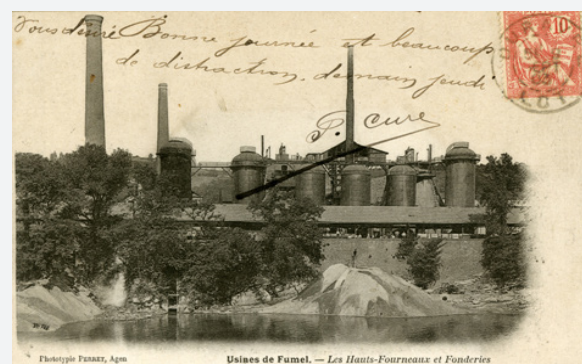 Vous désire Bonne journée et beaucoup
de distraction, demain jeudi
P. Cure
10
LOT
Phototypie PERRET, Agen
Usines de Fumel. — Les Hauts-Fourneaux et Fonderies